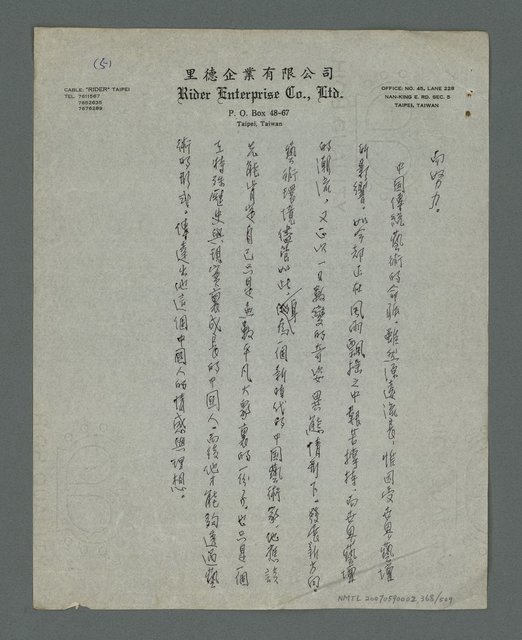 (5)
里德企業有限公司
Rider Enterprise Co., Ltd.
P. O. Box 48-67
Taipei, Taiwan
CABLE: "RIDER" TAIPEI
TEL. 7611567
7652635
7676289
OFFICE: NO. 45, LANE 228
NAN-KING E. RD. SEC. 5
TAIPEI, TAIWAN
而努力。
中國傳統藝術的命脈，雖然源遠流長，惟因受世界藝壇
所影響，如今却正在風雨飄搖之中艱苦撐持，而世界藝壇
的潮流，又正以一日數變的奇姿異態情形下，發展新方向。
藝術環境儘管如此，身為一個新時代的中國藝術家，他應該
先能肯定自己只是無數平凡大眾裏的一份子，也只是一個
在特殊歷史與現實裏成長的中國人，而後他才能夠透過藝
術的形式，傳達出他這個中國人的情感與理想。
NMTL 20070590002 368/509